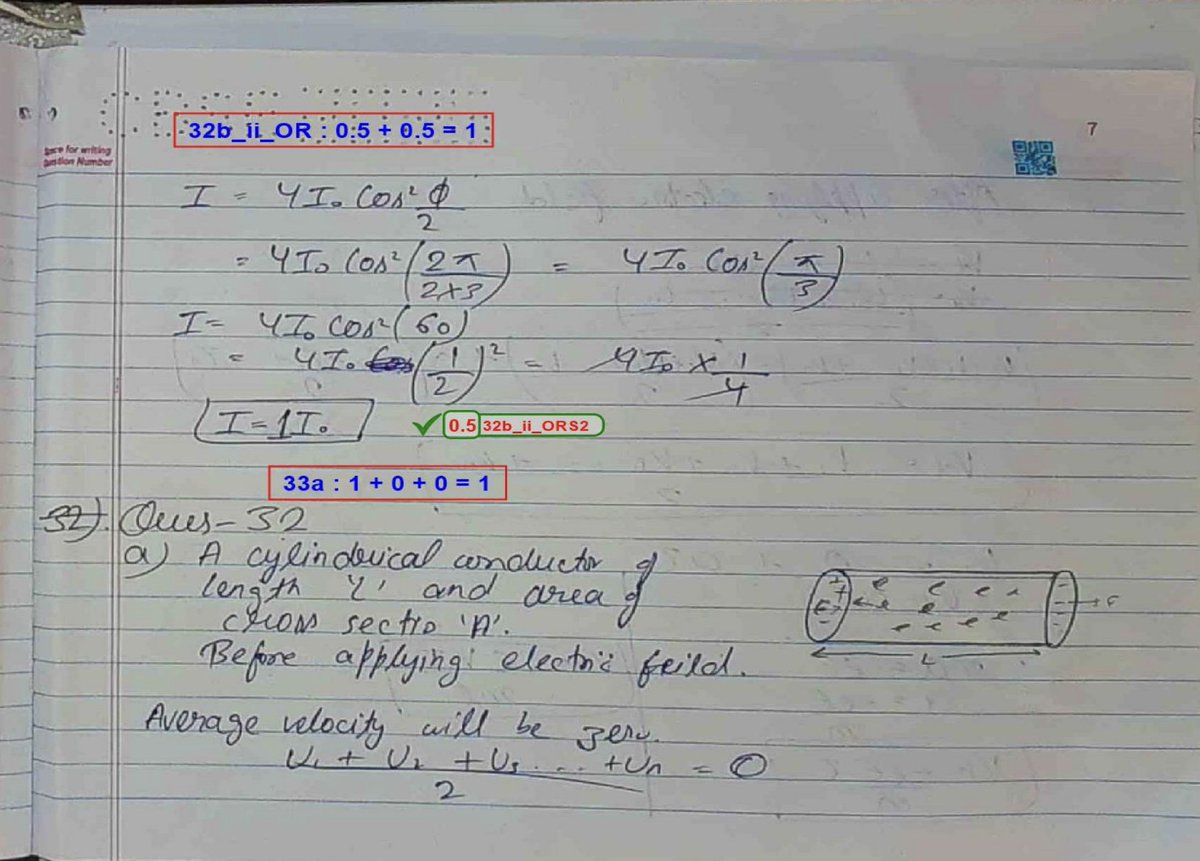 32b_ii_OR : 0.5 + 0.5 = 1
7
Space for writing
Question Number
I = 4I₀ Cos² ϕ/2
= 4I₀ Cos² (2π/2×3) = 4I₀ Cos² (π/3)
I = 4I₀ Cos² (60)
= 4I₀ (1/2)² = 4I₀ × 1/4
I = 1I₀
0.5 32b_ii_ORS2
33a : 1 + 0 + 0 = 1
32) Ques - 32
a) A cylinderical conductor of
length 'L' and area of
cross sectio 'A'.
Before applying electric feild.
L
Average velocity will be zero.
U₁ + U₂ + U₃ . ... + Un / 2 = 0